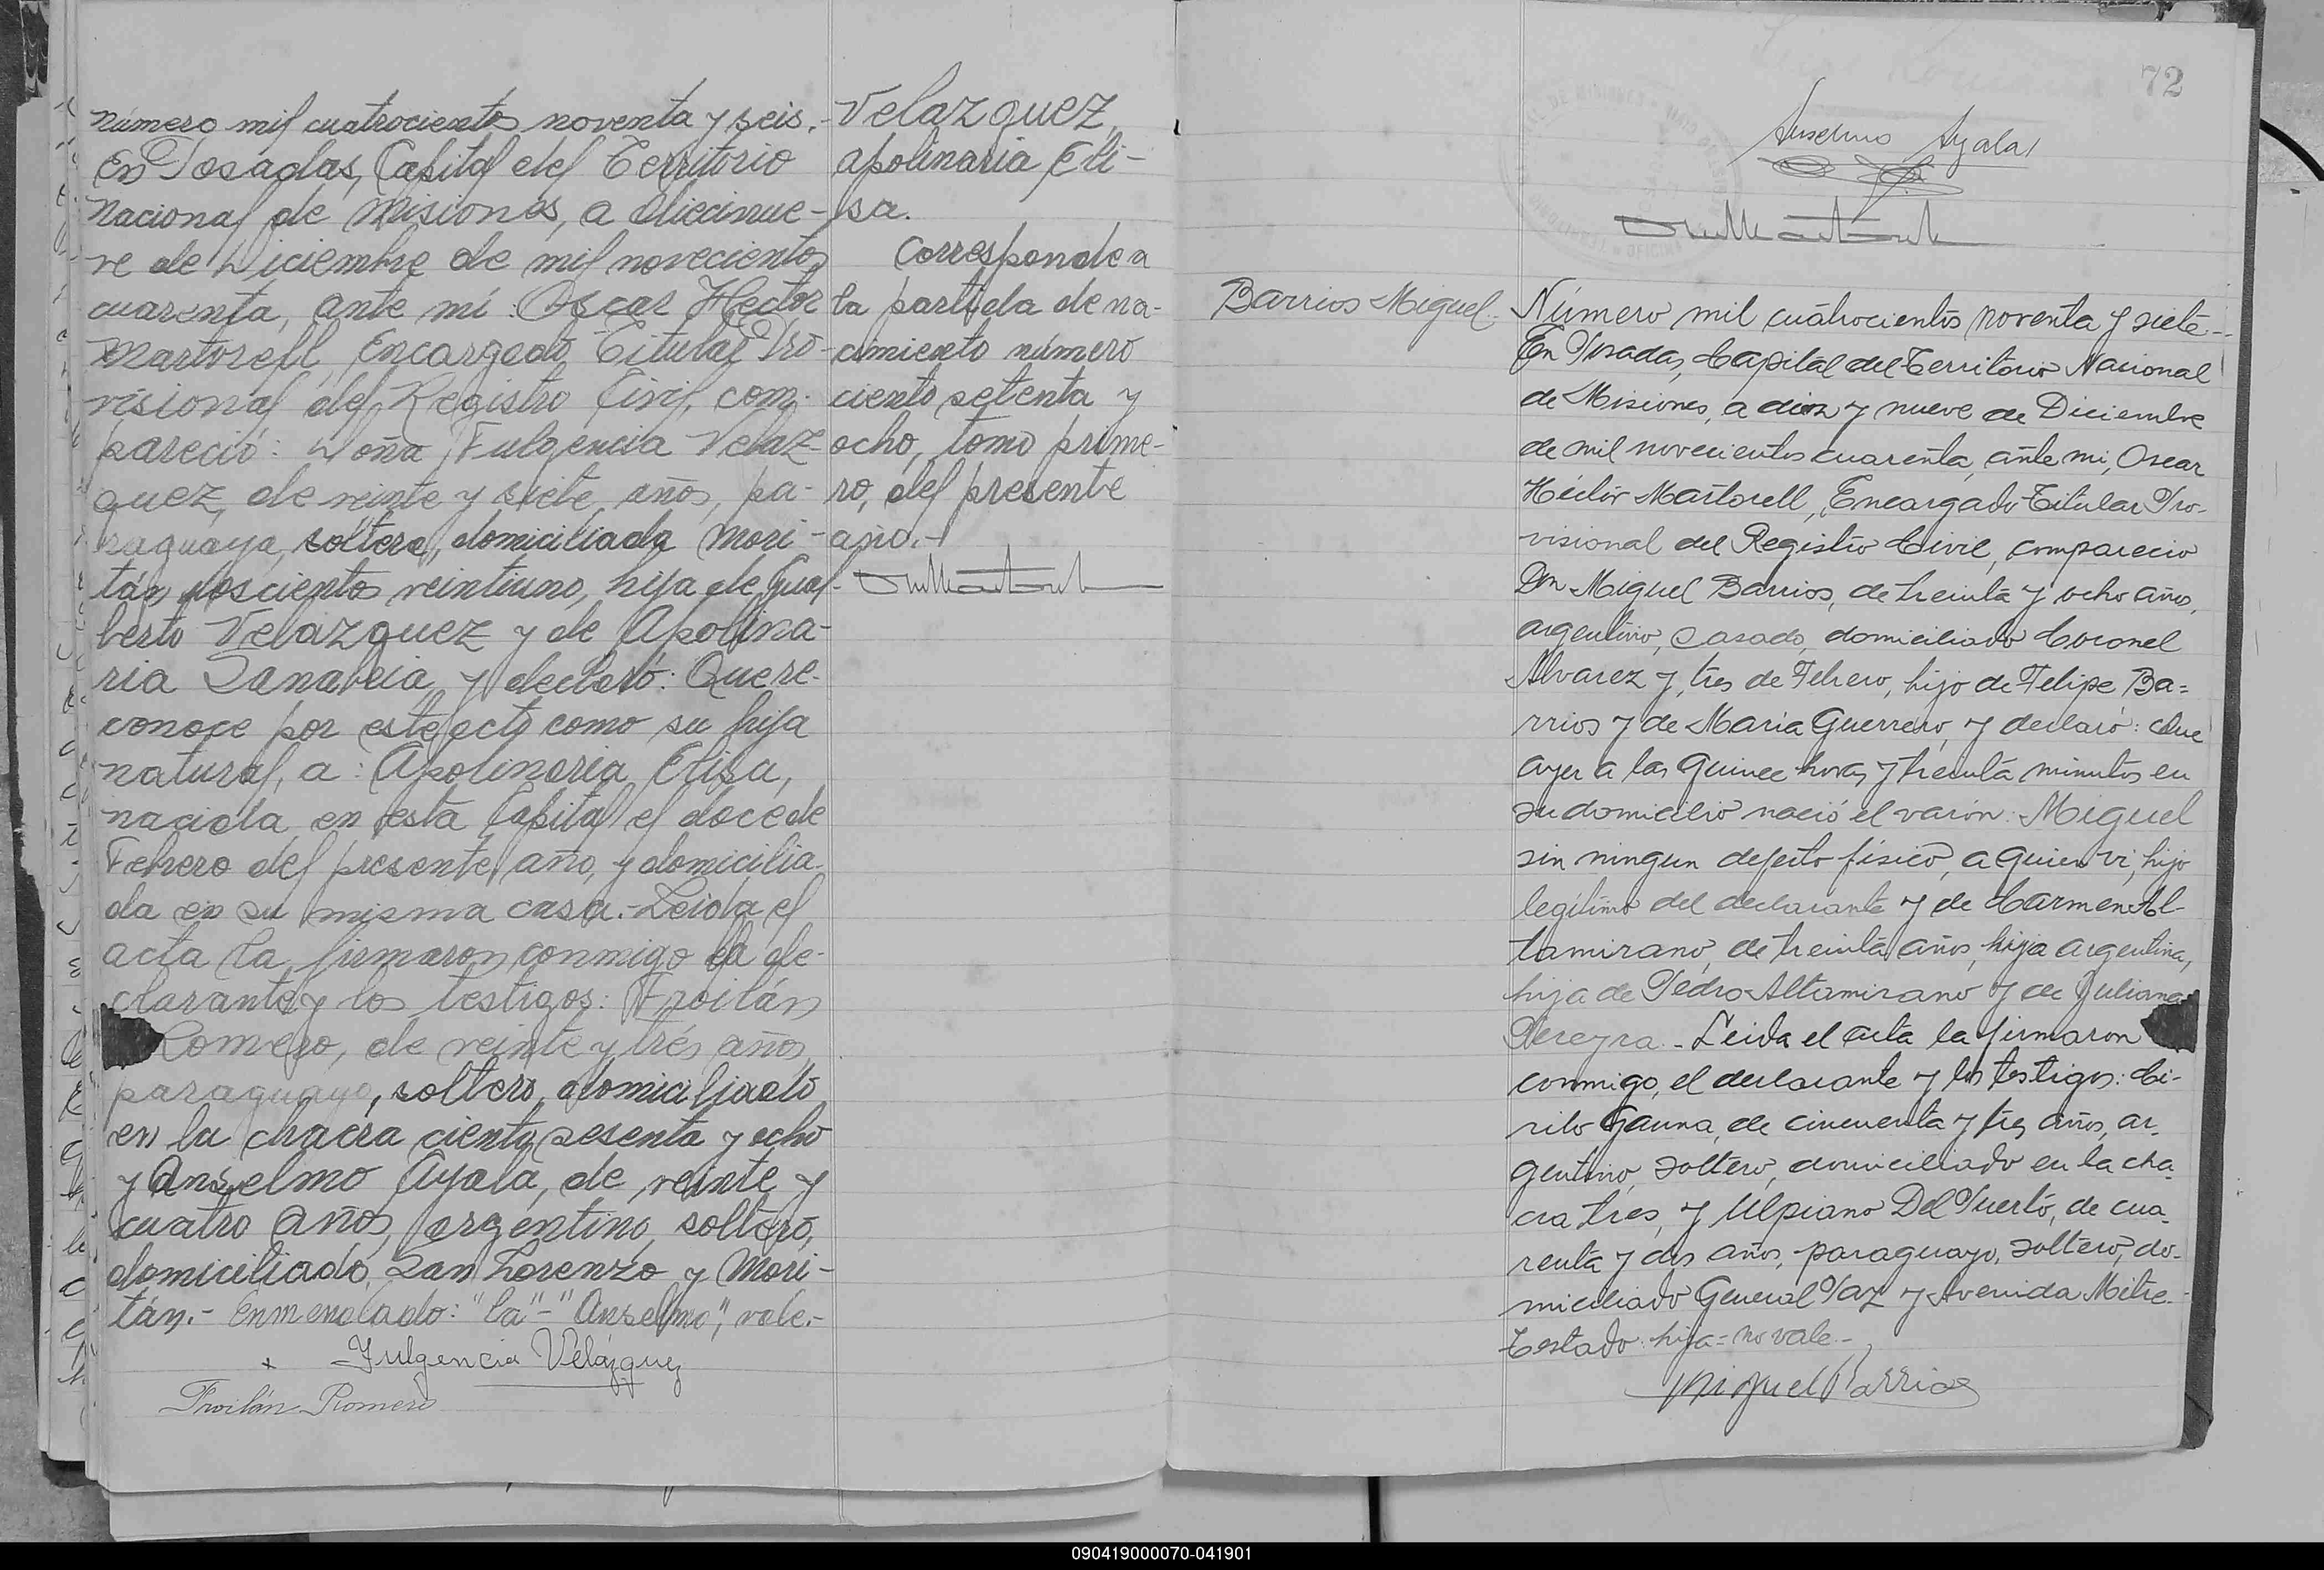 número mil cuatrocientos noventa y seis.-
En Posadas, Capital del Territorio
Nacional de Misiones, a diecinue-
ve de Diciembre de mil novecientos
cuarenta, ante mí: Oscar Hector
Martorell, Encargado Titular Pro-
visional del Registro Civil, com-
pareció: Doña Fulgencia Velaz-
quez, de veinte y siete años, pa-
raguaya, soltera, domiciliada Mori-
tán doscientos veintiuno, hija de Gual-
berto Velazquez y de Apolina-
ria Sanabria y declaró: Que re-
conoce por este acto como su hija
natural, a: Apolinaria Elisa,
nacida en esta Capital el doce de
Febrero del presente año, y domicilia-
da en su misma casa.- Leida el
acta la firmaron conmigo la de-
clarante y los testigos: Froilán
Romero, de veinte y trés años,
paraguayo, soltero, domiciliado
en la chacra ciento sesenta y ocho
y Anselmo Ayala, de veinte y
cuatro años, argentino, soltero,
domiciliado, San Lorenzo y Mori-
tán.- Enmendado: "la"-"Anselmo", vale.-
x Fulgencia Velázquez
Froilán Romero
Velazquez,
Apolinaria Eli-
sa.
Corresponde a
la partida de na-
cimiento número
ciento setenta y
ocho, tomo prime-
ro, del presente
año.-
72
Anselmo Ayala
Barrios Miguel.-
Número mil cuatrocientos noventa y siete-
En Posadas, Capital del Territorio Nacional
de Misiones, a diez y nueve de Diciembre
de mil novecientos cuarenta, ante mi, Oscar
Héctor Martorell, Encargado Titular Pro-
visional del Registro Civil, compareció
Don Miguel Barrios, de treinta y ocho años,
argentino, casado, domiciliado Coronel
Alvarez y tres de Febrero, hijo de Felipe Ba=
rrios y de Maria Guerrero, y declaró: Que
ayer a las quince horas y treinta minutos en
su domicilio nació el varón: Miguel
sin ningun defecto físico, a quien vi, hijo
legítimo del declarante y de Carmen Al-
tamirano, de treinta años, hija argentina,
hija de Pedro Altamirano y de Juliana
Pereyra.- Leida el acta la firmaron
conmigo, el declarante y los testigos: Ci-
rilo Gauna, de cincuenta y tres años, ar-
gentino, soltero, domiciliado en la cha-
cra tres, y Ulpiano Del Puerto, de cua-
renta y dos años, paraguayo, soltero, do-
miciliado General Paz y Avenida Mitre.-
Testado: hija= no vale.-
Miguel Barrios
090419000070-041901